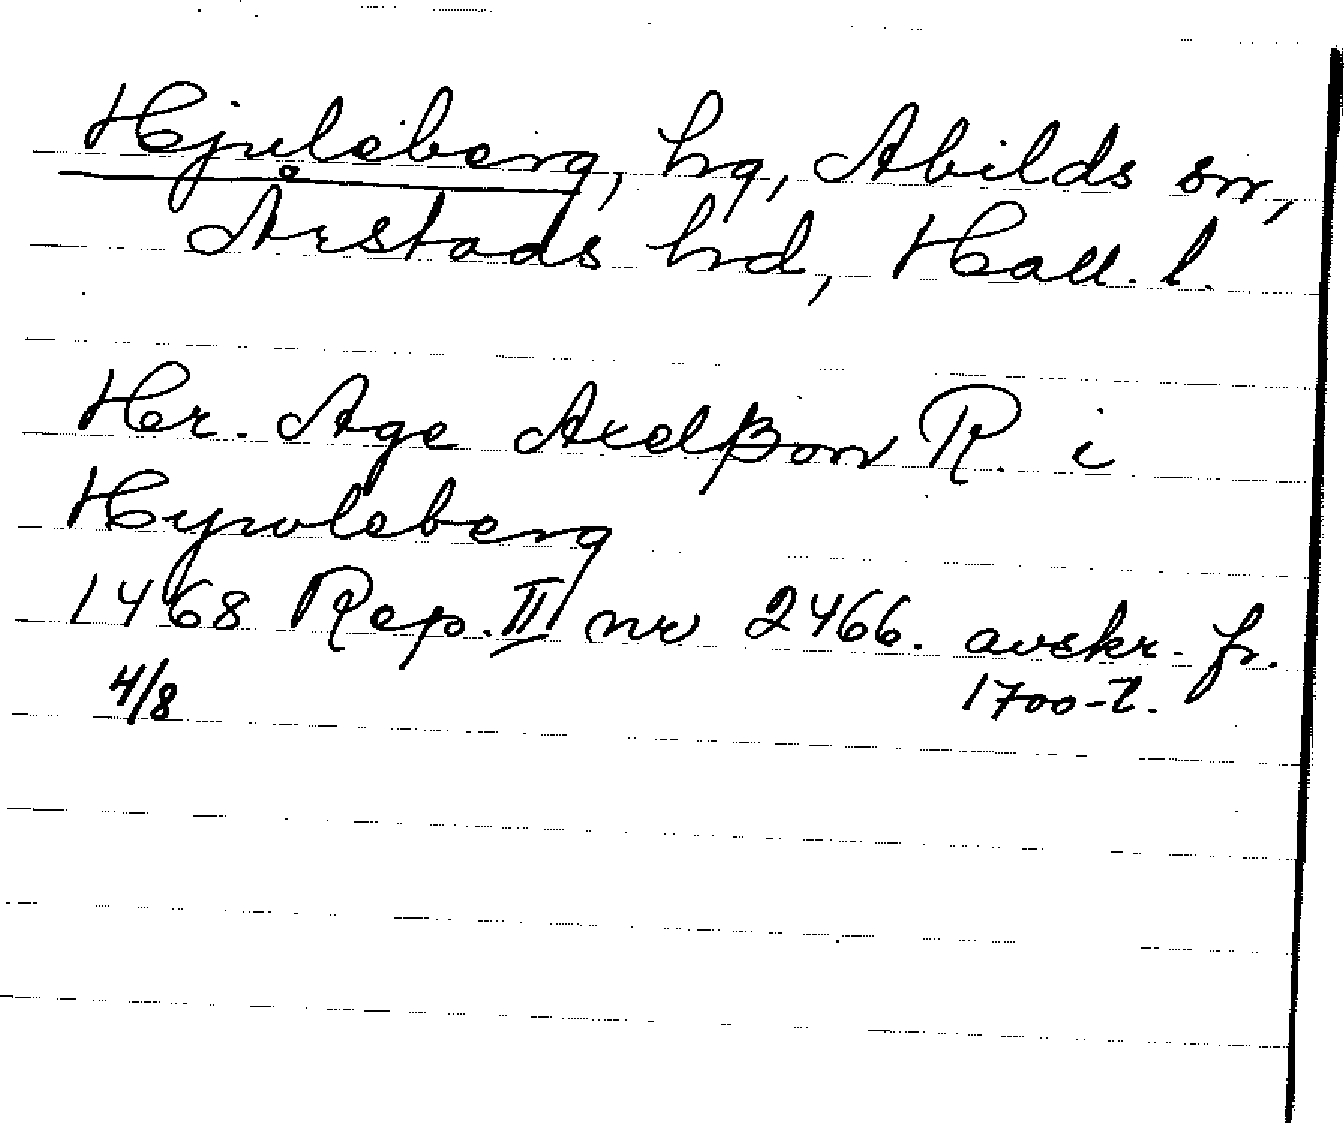 Hjuleberg, hg, Abilds sn,
Årstads hd, Hall. l.
Hr. Age Axelßøn R. i
Hywleberg
1468 Rep. II nr 2466. avskr. fr.
4/8 1700-t.